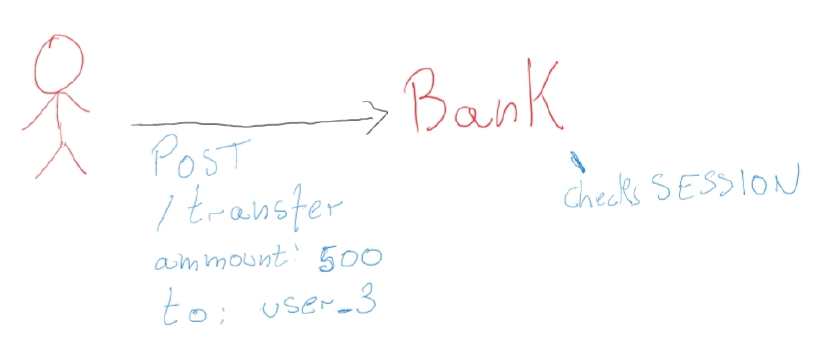 BanK
POST
/transfer
ammount: 500
to: user_3
checks SESSION